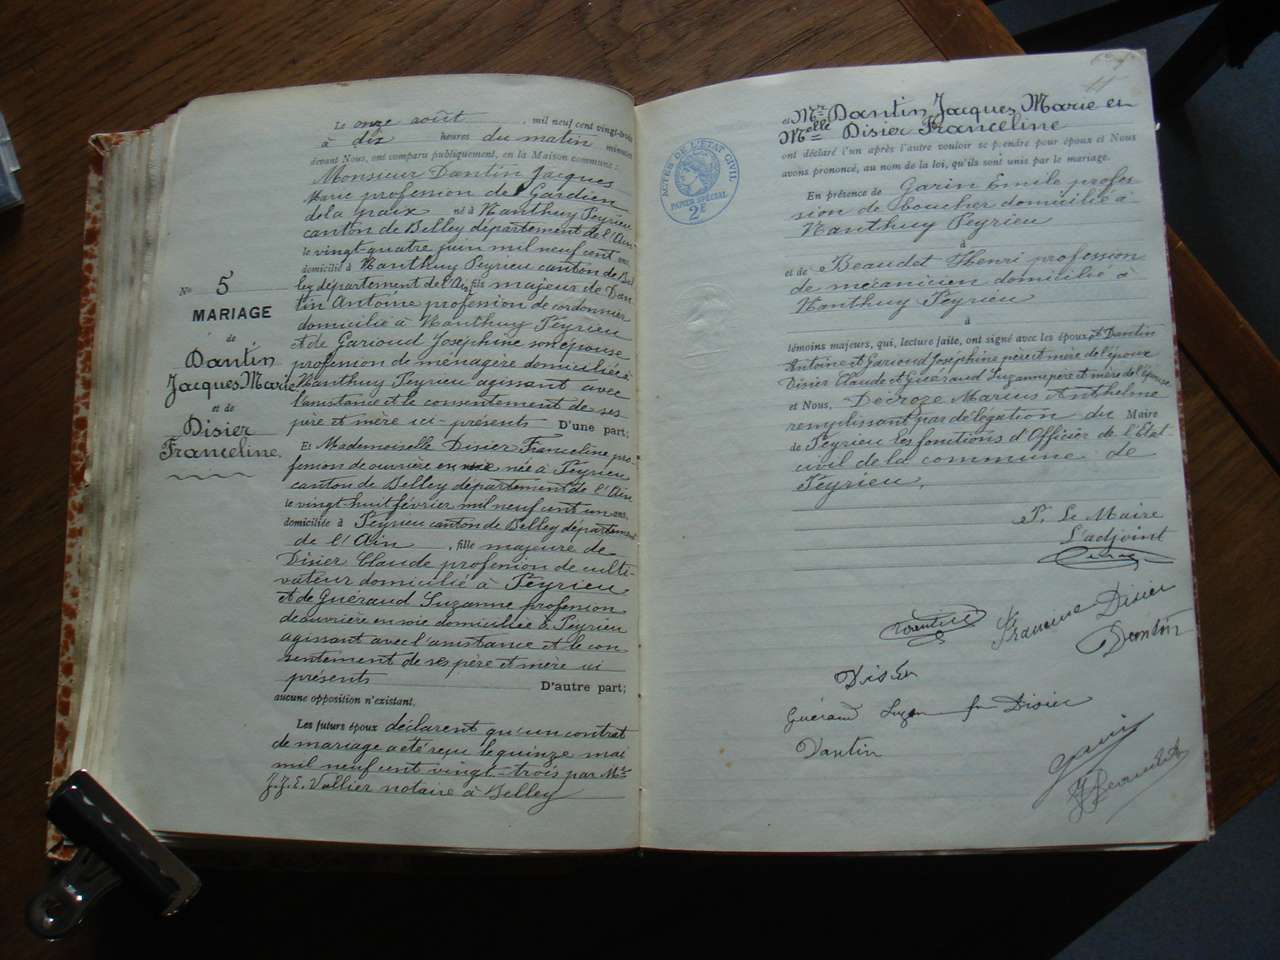 Nº 5
MARIAGE
de
Dantin
Jacques Marie
et de
Disier
Franceline.
Le onze août, mil neuf cent vingt-trois
à dix heures du matin minutes
devant Nous, ont comparu publiquement, en la Maison commune :
Monsieur Dantin Jacques
Marie profession de Gardien
de la paix né à Nanthuy Peyrieu
canton de Belley département de l'Ain
le vingt quatre juin mil neuf cent
domicilié à Nanthuy Peyrieu canton de Bel
ley département de l'Ain fils majeur de Dan
tin Antoine profession de cordonnier
domicilié à Nanthuy Peyrieu
et de Garioud Joséphine son épouse
profession de ménagère domiciliée à
Nanthuy Peyrieu agissant avec
l'assistance et le consentement de ses
père et mère ici-présents D'une part;
Et Mademoiselle Disier Franceline pro
fession de ouvrière en soie née à Peyrieu
canton de Belley département de l'Ain
le vingt huit février mil neuf cent un
domiciliée à Peyrieu canton de Belley département
de l'Ain, fille majeure de
Disier Claude profession de culti-
vateur domicilié à Peyrieu
et de Guéraud Suzanne profession
de ouvrière en soie domiciliée à Peyrieu
agissant avec l'assistance et le con
sentement de ses père et mère ici
présents D'autre part;
aucune opposition n'existant.
Les futurs époux déclarent qu'un contrat
de mariage a été reçu le quinze mai
mil neuf cent vingt-trois par Me
J.J.E. Vallier notaire à Belley
ACTES DE L'ÉTAT CIVIL
PAPIER SPÉCIAL
2F
et Mr Dantin Jacques Marie en
Melle Disier Franceline
ont déclaré l'un après l'autre vouloir se prendre pour époux et Nous
avons prononcé, au nom de la loi, qu'ils sont unis par le mariage.
En présence de Garin Emile profes-
sion de boucher domicilié à
Nanthuy Peyrieu
à
et de Beaudet Henri profession
de mécanicien domicilié à
Nanthuy Peyrieu
à
témoins majeurs, qui, lecture faite, ont signé avec les époux, et Dantin
Antoine et Garioud Joséphine père et mère de l'époux
Disier Claude et Guéraud Suzanne père et mère de l'épouse
et Nous, Decroze Marius Anthelme
remplissant par délégation du Maire
de Peyrieu les fonctions d'Officier de l'Etat
civil de la commune de
Peyrieu,
P. Le Maire
L'adjoint
Francine Disier
Dantin
Disier
Guéraud Suzan fm Disier
Dantin
Garin